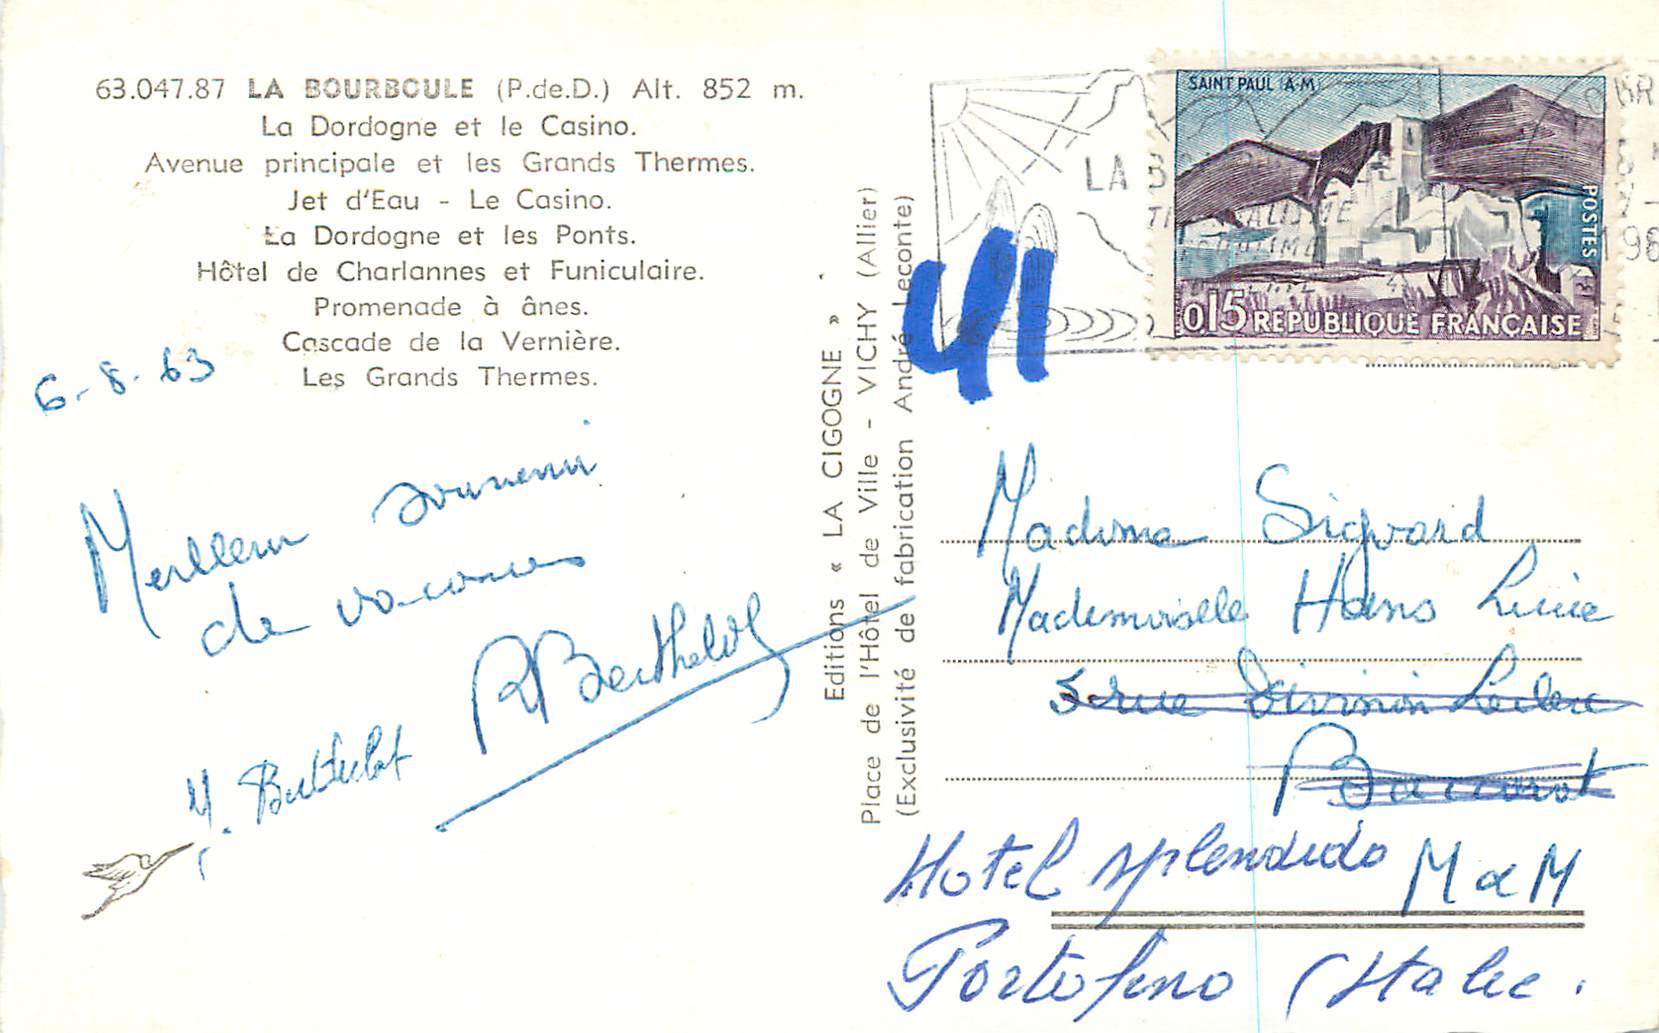 63.047.87 LA BOURBOULE (P.de.D.) Alt. 852 m.
La Dordogne et le Casino.
Avenue principale et les Grands Thermes.
Jet d'Eau - Le Casino.
La Dordogne et les Ponts.
Hôtel de Charlannes et Funiculaire.
Promenade à ânes.
Cascade de la Vernière.
Les Grands Thermes.
6-8-63
Meilleur souvenir
de vacances
R Berthelot
Y. Berthelot
Editions « LA CIGOGNE »
Place de l'Hôtel de Ville - VICHY (Allier)
(Exclusivité de fabrication André Leconte)
LA B
41
SAINT PAUL (A-M)
POSTES
0,15 REPUBLIQUE FRANÇAISE
Madame Sigward
Mademoiselle Hans Lucie
5 rue Division Leclerc
Baccarat
Hotel splendido M & M
Portofino (Italie.